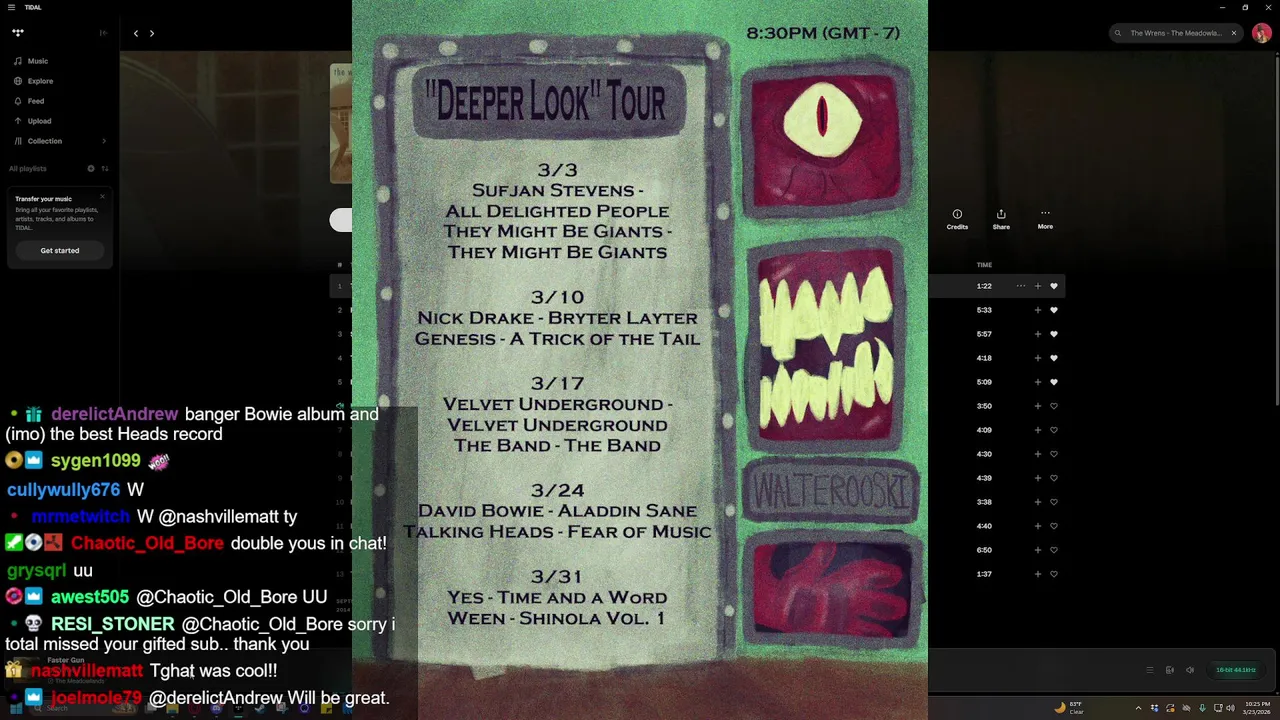 TIDAL
Music
Explore
Feed
Upload
Collection
All playlists
Transfer your music
Bring all your favorite playlists,
artists, tracks, and albums to
TIDAL.
Get started
8:30PM (GMT - 7)
"DEEPER LOOK" TOUR
3/3
SUFJAN STEVENS -
ALL DELIGHTED PEOPLE
THEY MIGHT BE GIANTS -
THEY MIGHT BE GIANTS
3/10
NICK DRAKE - BRYTER LAYTER
GENESIS - A TRICK OF THE TAIL
3/17
VELVET UNDERGROUND -
VELVET UNDERGROUND
THE BAND - THE BAND
3/24
DAVID BOWIE - ALADDIN SANE
TALKING HEADS - FEAR OF MUSIC
3/31
YES - TIME AND A WORD
WEEN - SHINOLA VOL. 1
WALTEROOSKI
The Wrens - The Meadowla...
Credits
Share
More
#
TIME
1
1:22
2
5:33
3
5:57
4
4:18
5
5:09
3:50
4:09
4:30
4:39
3:38
4:40
6:50
1:37
derelictAndrew banger Bowie album and
(imo) the best Heads record
sygen1099
cullywully676 W
mrmetwitch W @nashvillematt ty
Chaotic_Old_Bore double yous in chat!
grysqrl uu
awest505 @Chaotic_Old_Bore UU
RESI_STONER @Chaotic_Old_Bore sorry i
total missed your gifted sub.. thank you
nashvillematt Tghat was cool!!
joelmole79 @derelictAndrew Will be great.
Faster Gun
The Meadowlands
Search
16-bit 44.1kHz
83°F
Clear
10:25 PM
3/23/2026